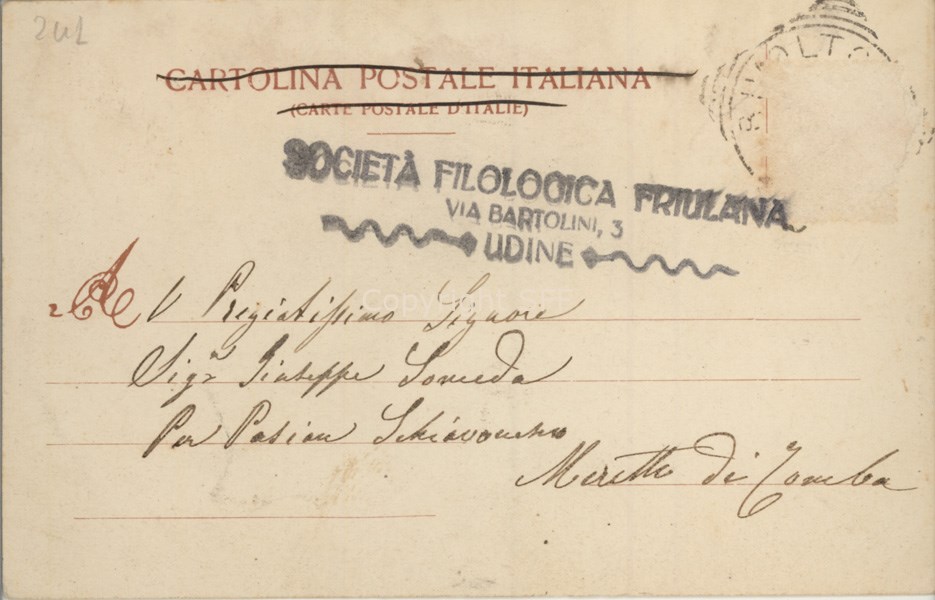 241
CARTOLINA POSTALE ITALIANA
(CARTE POSTALE D'ITALIE)
RIVOLTO
SOCIETÀ FILOLOGICA FRIULANA
VIA BARTOLINI, 3
UDINE
Copyright SFF
Al Pregiatissimo Signore
Sigr Giuseppe Someda
Per Pasian Schiavonesco
Meretto di Tomba